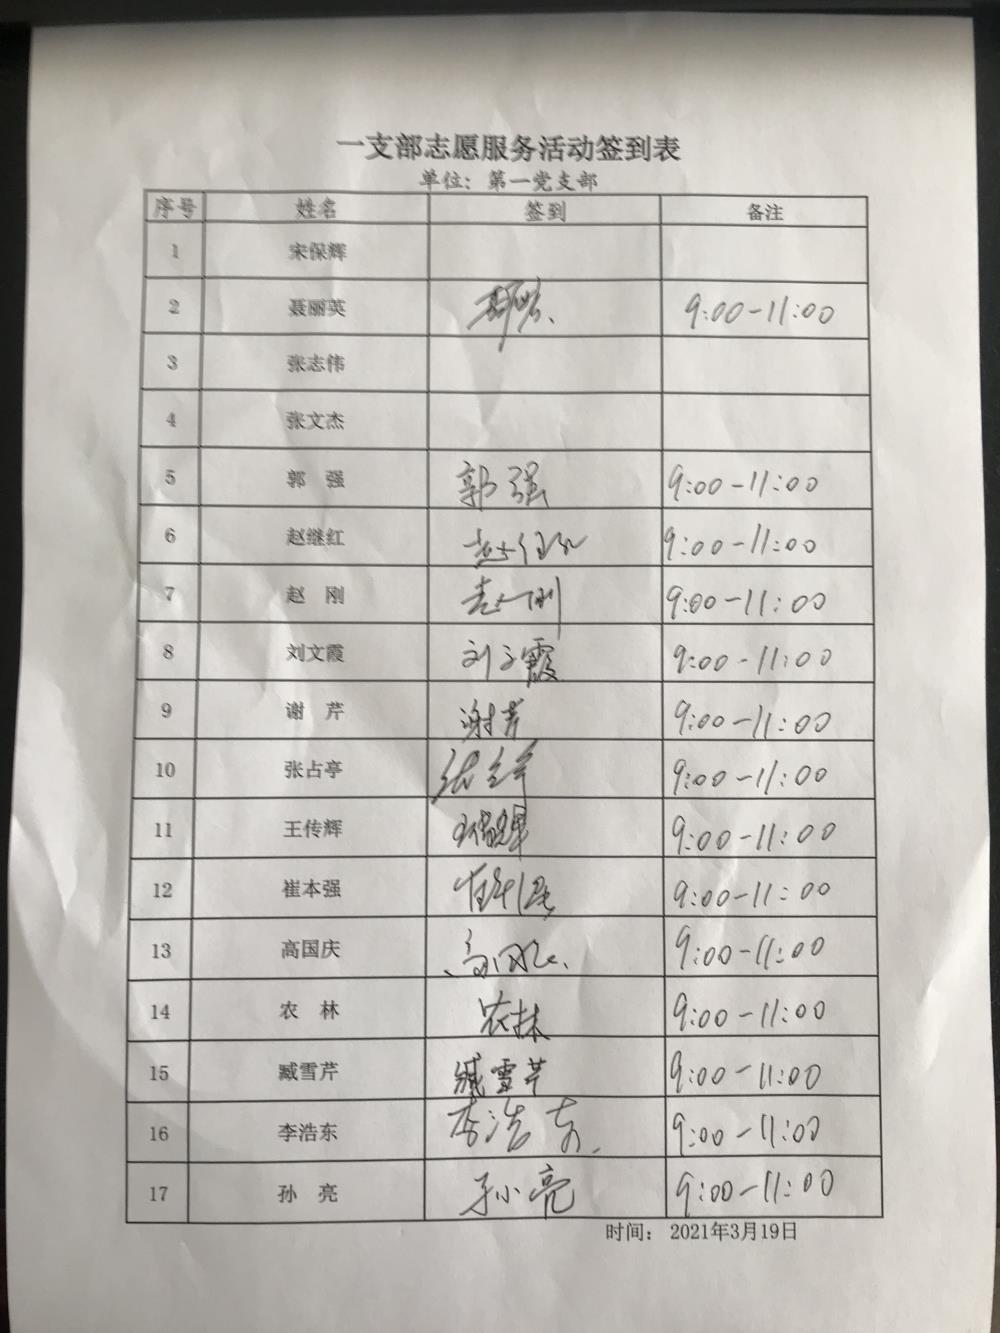 一支部志愿服务活动签到表
单位：第一党支部
序号 姓名 签到 备注
1 宋保辉
2 聂丽英 9:00-11:00
3 张志伟
4 张文杰
5 郭 强 郭强 9:00-11:00
6 赵继红 9:00-11:00
7 赵 刚 赵刚 9:00-11:00
8 刘文霞 刘文霞 9:00-11:00
9 谢 芹 谢芹 9:00-11:00
10 张占亭 9:00-11:00
11 王传辉 9:00-11:00
12 崔本强 9:00-11:00
13 高国庆 9:00-11:00
14 农 林 农林 9:00-11:00
15 臧雪芹 臧雪芹 9:00-11:00
16 李浩东 李浩东 9:00-11:00
17 孙 亮 孙亮 9:00-11:00
时间： 2021年3月19日